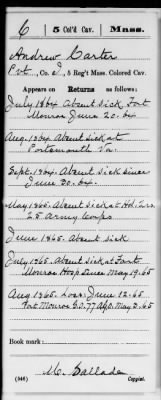 6 | 5 Col'd Cav. | Mass.
Andrew Carter
Pvt., Co. I, 5 Reg't Mass. Colored Cav.
Appears on Returns as follows:
July 1864. Absent sick, Fort
Monroe June 20. 64
Aug. 1864. Absent sick at
Portsmouth Va.
Sept. 1864. Absent sick since
June 20. 64.
May 1865. Absent sick at Hd. Qrs.
25 Army Corps
June 1865. Absent sick
July 1865. Absent sick at Fort
Monroe Hosp since May 19. 65
Aug 1865. Loss: June 12. 65
Fort Monroe G.O. 77 AGO. May 2. 65
Book mark:
M. Callada
(546) Copyist.